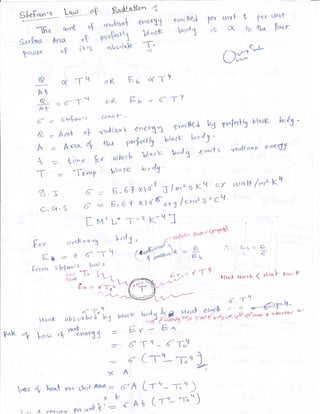 Stefan's Law of Radiation :
The amt of radiant energy emitted per unit t per unit
Surface Area of perfectly black body is α to four
power of it's absolute T.
Q/At α T⁴ OR E_b α T⁴
Q/At = σ T⁴ OR E_b = σ T⁴
σ = Stefan's const.
Q = Amt of radiant energy emitted by perfectly black body.
A = Area of the perfectly black body.
t = time for which black body emits radiant energy
T = Temp black body.
S.I σ = 5.67 x 10⁻⁸ J/m² s K⁴ or watt/m² K⁴
C.G.S σ = 5.67 x 10⁻⁵ erg/cm² s °C⁴
[M¹ L° T⁻³ K⁻⁴]
For ordinary body,
E = e σ T⁴ (coefficient of emissive = E/E_b) ∴ E_b = E/e
From Stefan's law,
T₀ E_b = σT⁴
E_a = σT₀⁴ T
σT₀⁴ σT⁴
Heat absorbed by black body & Heat emitt
Rate of loss of heat energy = E_r - E_a
= σT⁴ - σT₀⁴
= σ (T⁴ - T₀⁴)
x A
loss of heat per unit Area = σ A (T⁴ - T₀⁴)
x t
= σ A t (T⁴ - T₀⁴)